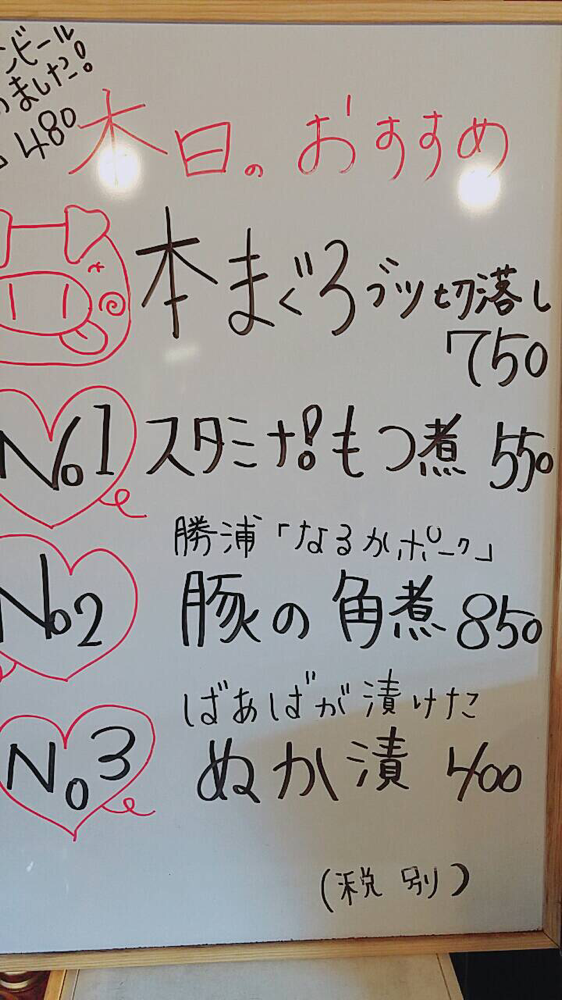 ンビール
ました!
480
本日のおすすめ
本まぐろブツ切落し
750
No1 スタミナ!もつ煮 550
勝浦「なるかポーク」
No2 豚の角煮 850
ばあばが漬けた
No3 ぬか漬 400
(税別)